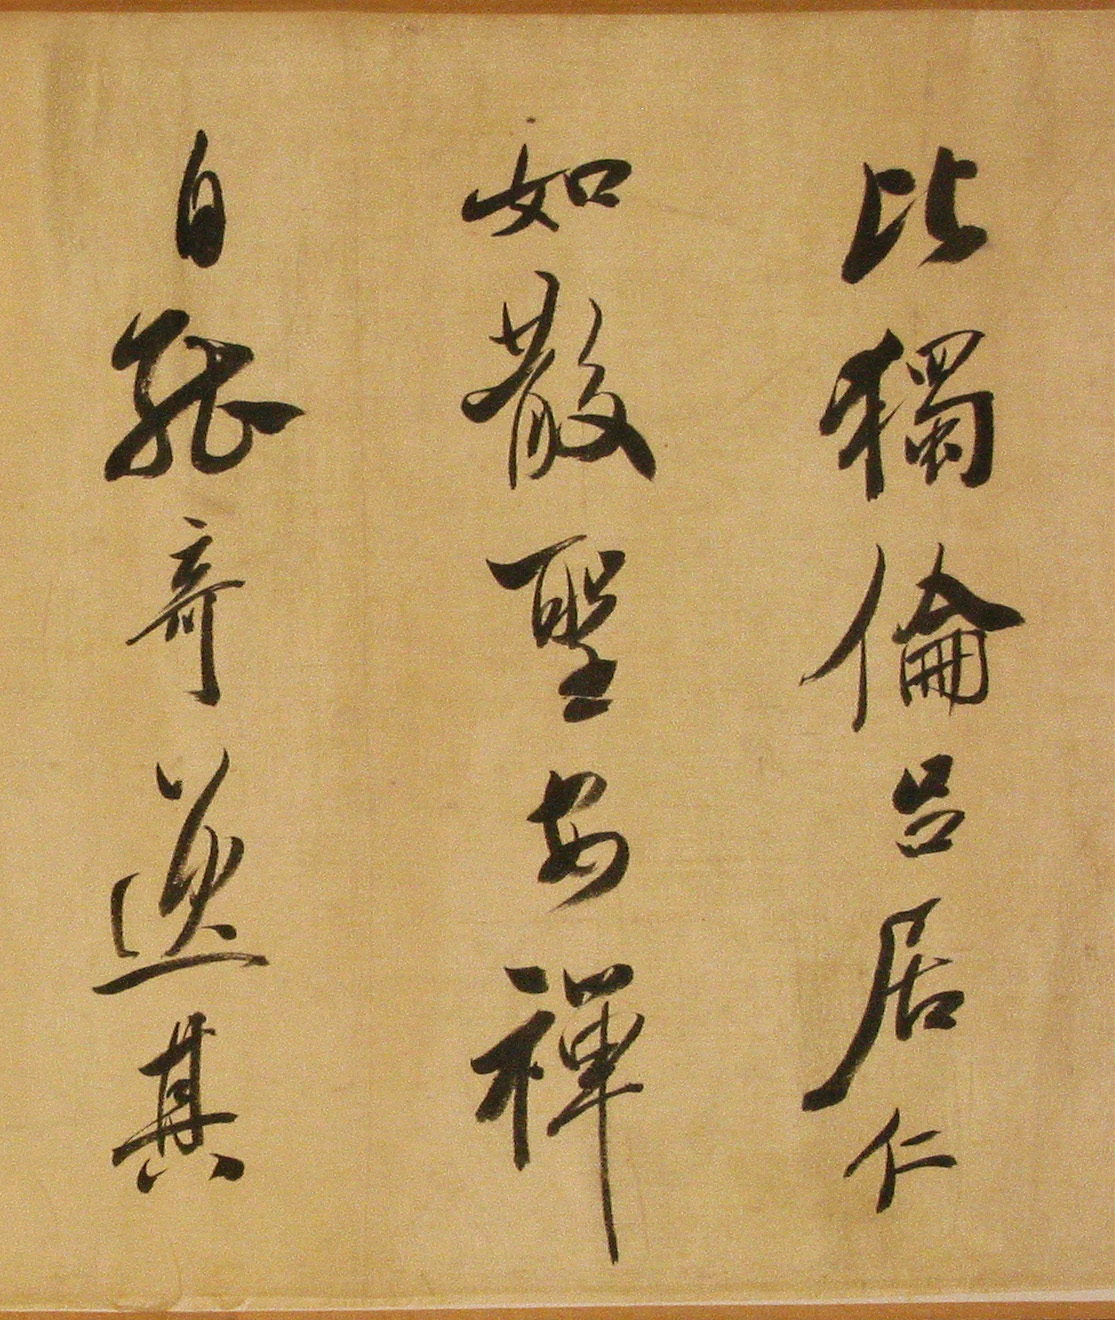 比獨倫呂居仁
如散聖安禪
自能奇逸其